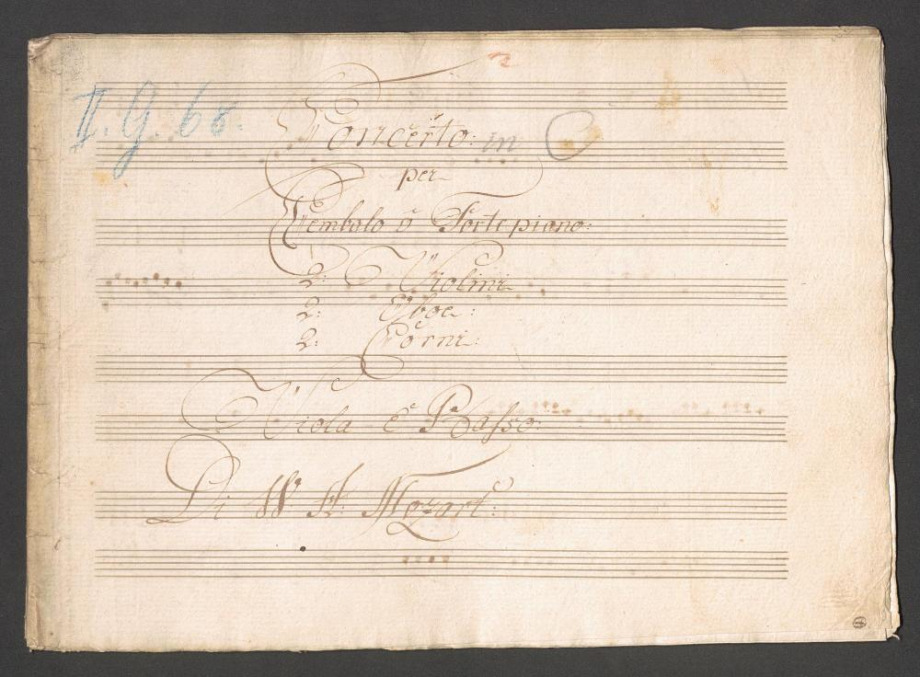 II. G. 68.
Concerto: in C
per
Cembalo ô Fortepiano:
2: Violini
2: Oboe:
2: Corni:
Viola è Basso:
Di W. A. Mozart: